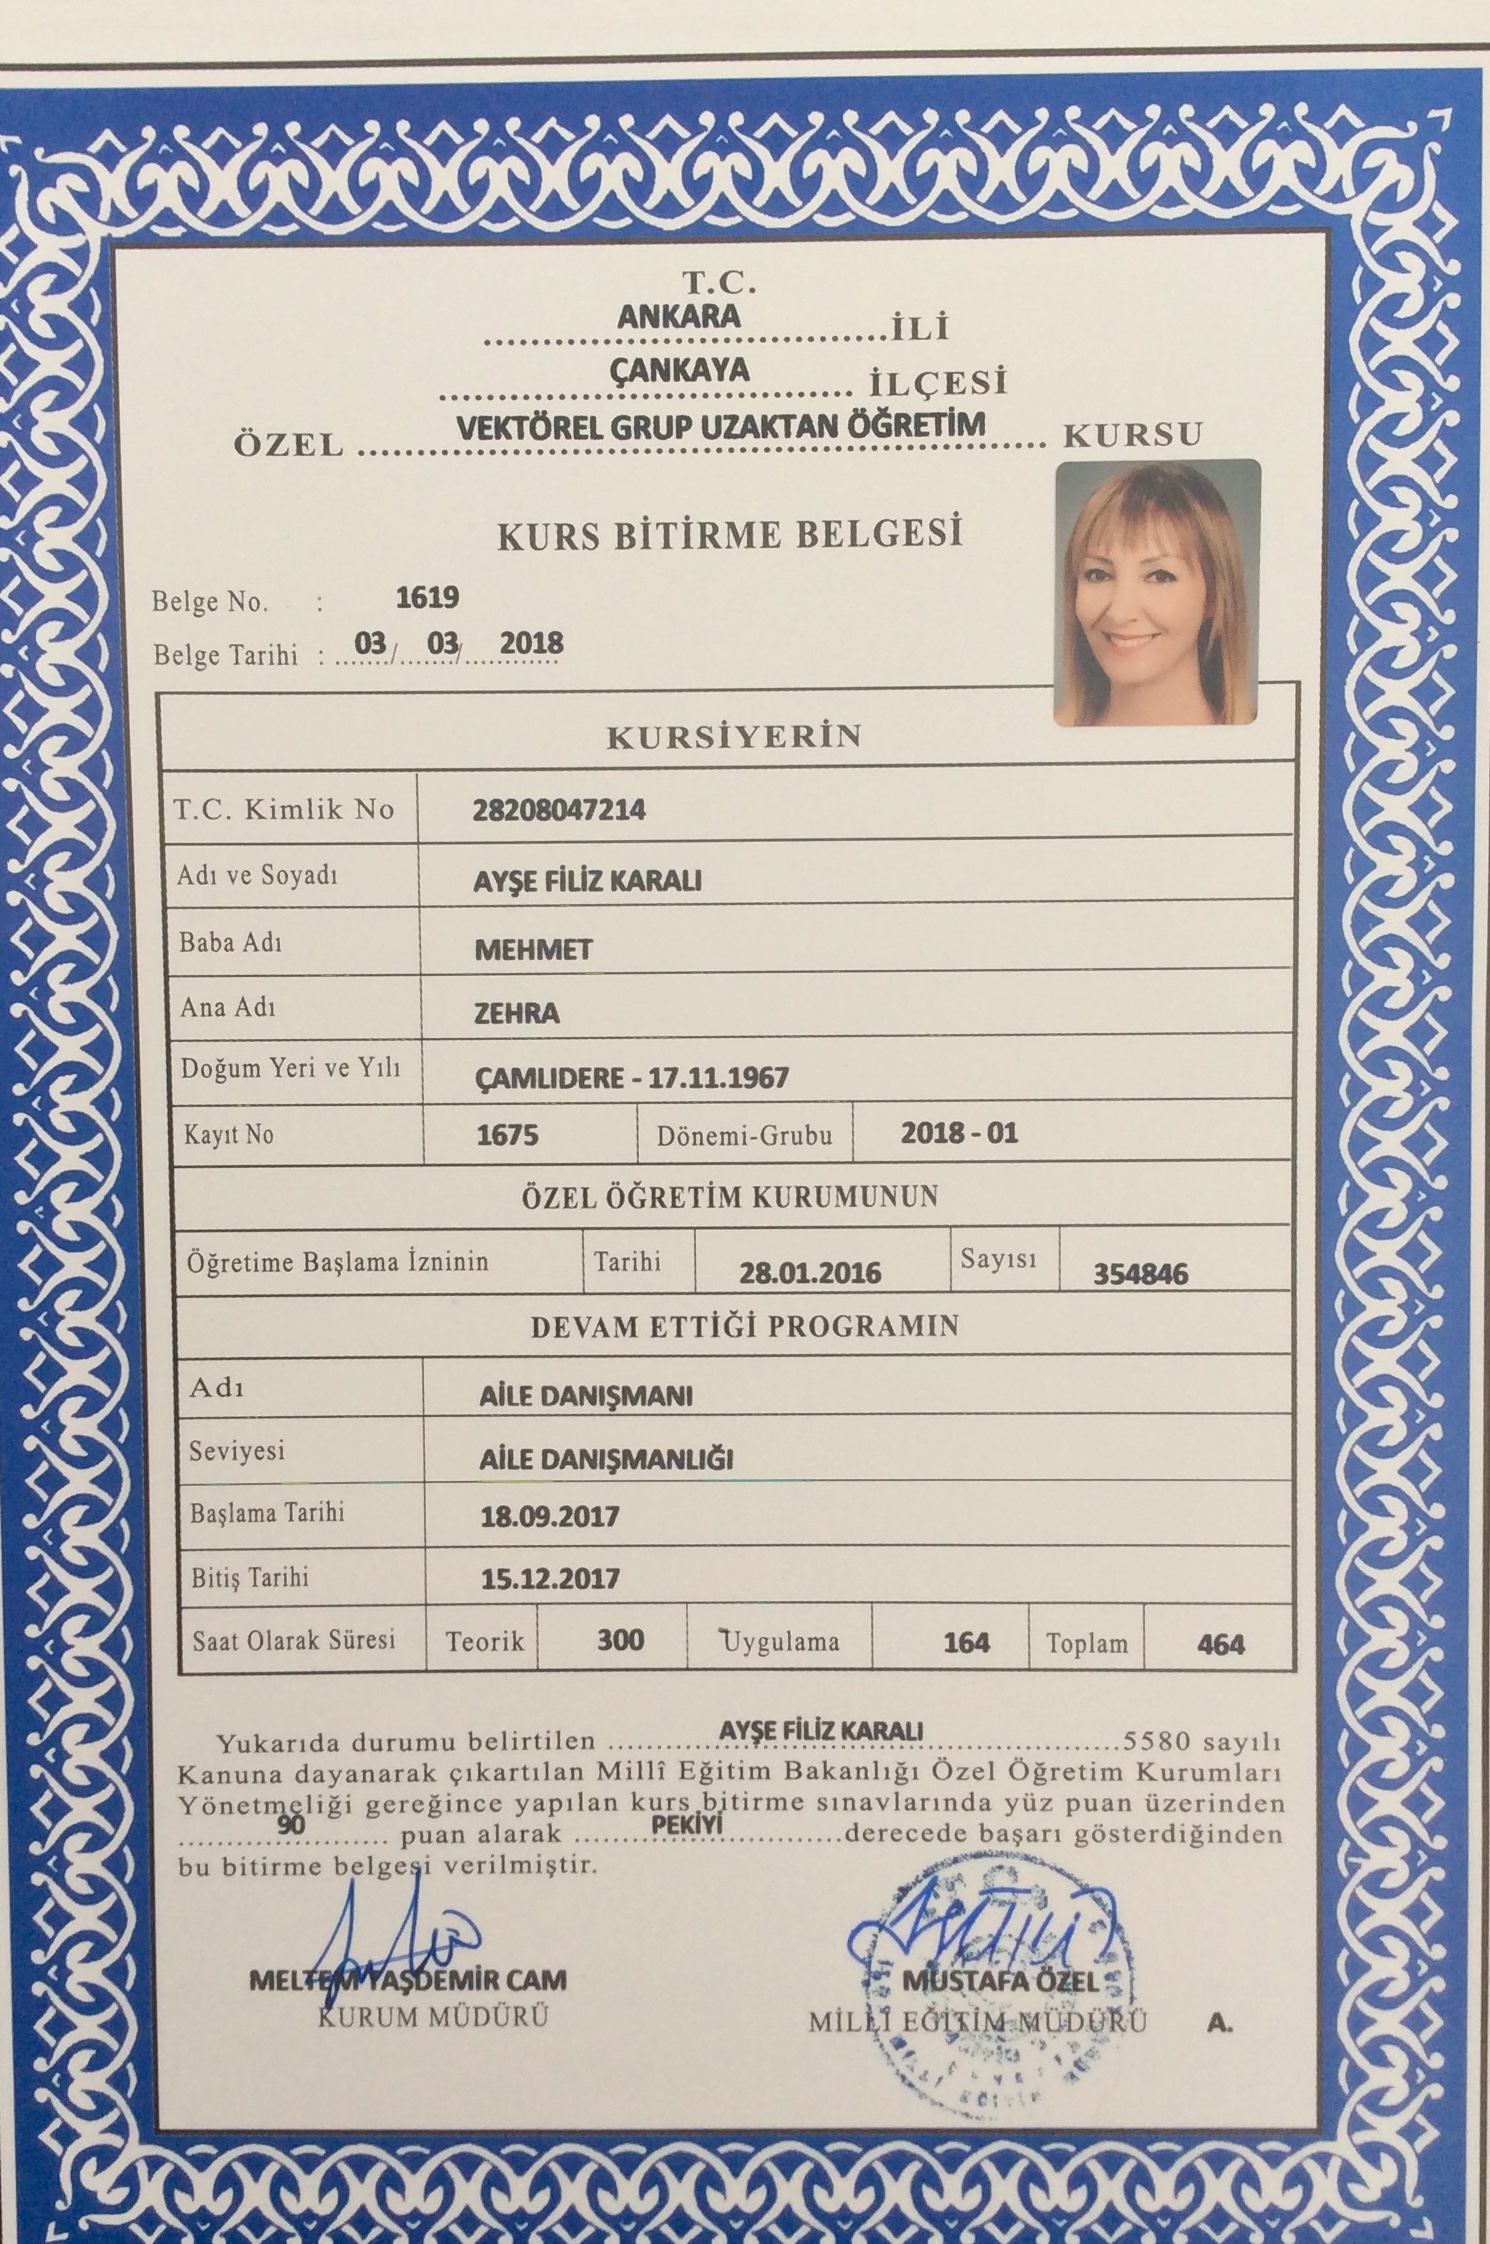 T.C.
ANKARA İLİ
ÇANKAYA İLÇESİ
ÖZEL VEKTÖREL GRUP UZAKTAN ÖĞRETİM KURSU
KURS BİTİRME BELGESİ
Belge No. : 1619
Belge Tarihi : 03/ 03/ 2018
KURSİYERİN
T.C. Kimlik No 28208047214
Adı ve Soyadı AYŞE FİLİZ KARALI
Baba Adı MEHMET
Ana Adı ZEHRA
Doğum Yeri ve Yılı ÇAMLIDERE - 17.11.1967
Kayıt No 1675 Dönemi-Grubu 2018 - 01
ÖZEL ÖĞRETİM KURUMUNUN
Öğretime Başlama İzninin Tarihi 28.01.2016 Sayısı 354846
DEVAM ETTİĞİ PROGRAMIN
Adı AİLE DANIŞMANI
Seviyesi AİLE DANIŞMANLIĞI
Başlama Tarihi 18.09.2017
Bitiş Tarihi 15.12.2017
Saat Olarak Süresi Teorik 300 Uygulama 164 Toplam 464
Yukarıda durumu belirtilen AYŞE FİLİZ KARALI 5580 sayılı
Kanuna dayanarak çıkartılan Millî Eğitim Bakanlığı Özel Öğretim Kurumları
Yönetmeliği gereğince yapılan kurs bitirme sınavlarında yüz puan üzerinden
90 puan alarak PEKİYİ derecede başarı gösterdiğinden
bu bitirme belgesi verilmiştir.
MELTEM TAŞDEMİR CAM MUSTAFA ÖZEL
KURUM MÜDÜRÜ MİLLÎ EĞİTİM MÜDÜRÜ A.